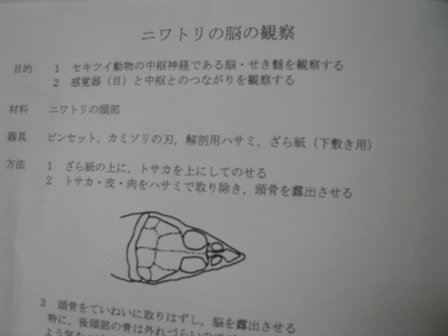 ニワトリの脳の観察
目的 1 セキツイ動物の中枢神経である脳・せき髄を観察する
2 感覚器（目）と中枢とのつながりを観察する
材料 ニワトリの頭部
器具 ピンセット，カミソリの刃，解剖用ハサミ，ざら紙（下敷き用）
方法 1 ざら紙の上に，トサカを上にしてのせる
2 トサカ・皮・肉をハサミで取り除き，頭骨を露出させる
3 頭骨をていねいに取りはずし，脳を露出させる
特に，後頭部の骨は外れづらいので